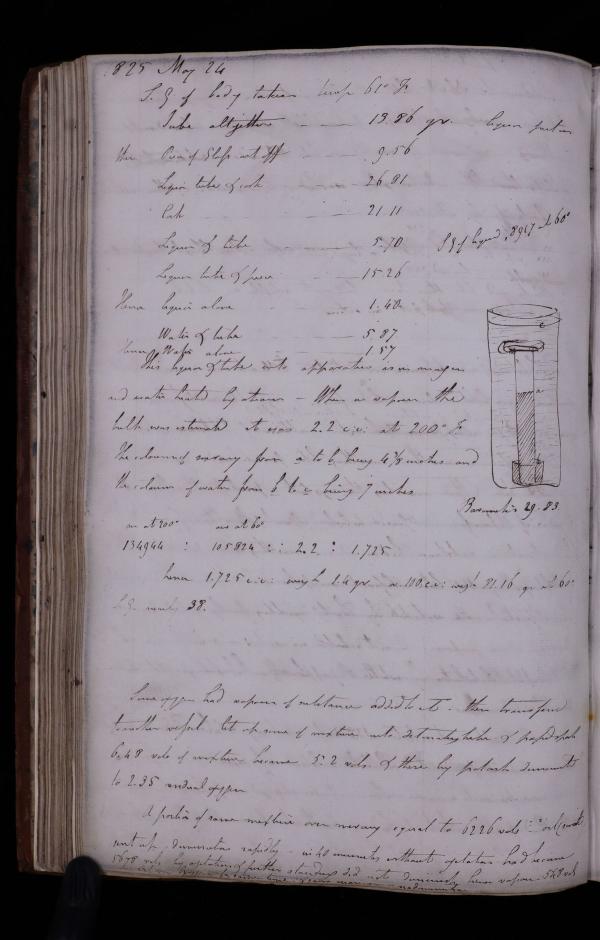 1825 May 24
S. G of body taken temp 61° F.
Tube altogether 13.86 gr. liquor portion
then Piece of Glass cut off 9.56
Liquor tube & cork 26.81
Cork 21.11
Liquor & tube 5.70 S G of liquid , 8917 at 60°
Liquor tube & piece 15.26
Hence liquor alone 1.40
Water & tube 5.87
Hence Water alone 1.57
This liquor & tube into apparatus as in margin
and water heated by steam - When in vapour the
bulk was estimated it was 2.2 c:i: at 200° F.
The column of mercury from a to b being 4 1/8 inches and
the column of water from b to c being 7 inches
Barometer 29.83
air at 200° air at 60°
134944 : 105824 :: 2.2 : 1.725
hence 1.725 c:i: weigh 1.4 gr or 100 c:i: weigh 81.16 gr at 60°
S. G. nearly 38.
Some oxygen had vapour of substance added to it. then transferred
to another vessel. let up some of mixture into detonating tube &
6.48 vols of mixture became 5.2 vols. & these by potash diminished
to 2.35 residual oxygen
A portion of same mixture over mercury equal to 6226 vols
sent up - diminution rapidly - in 40 minutes without agitation had become
5678 vols by agitation & further standing did not diminish hence vapour 548 vols